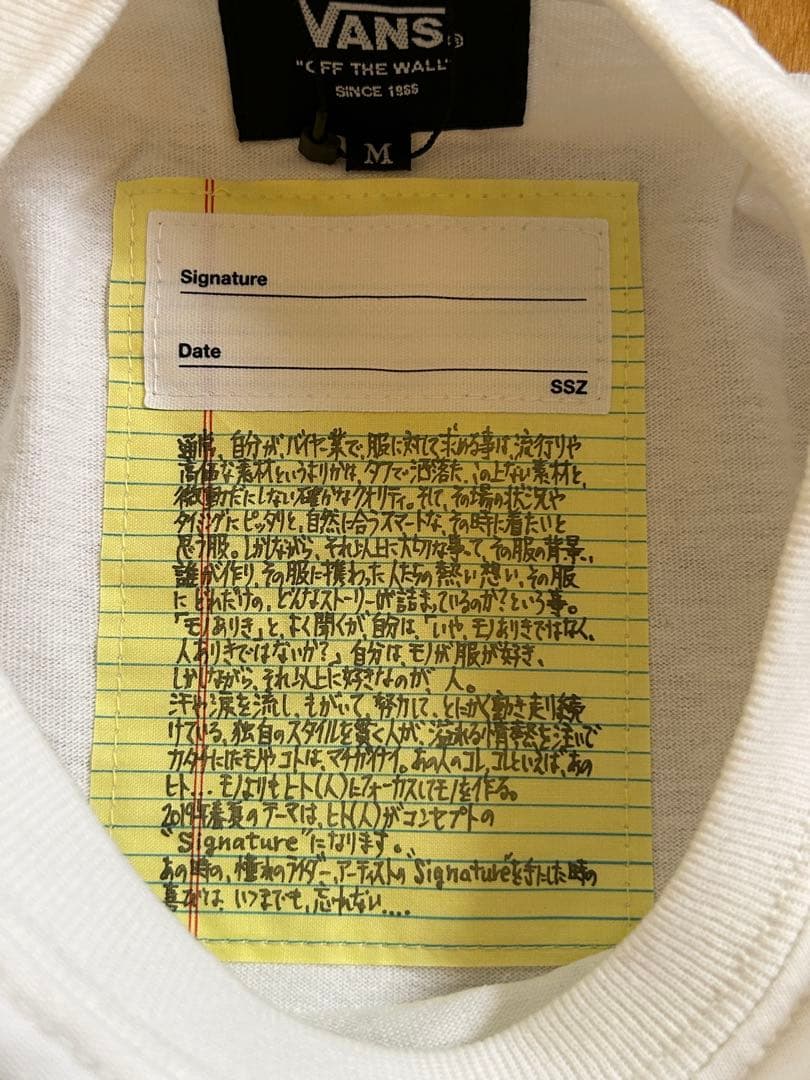 VANS
"OFF THE WALL"
SINCE 1966
M
Signature
Date
SSZ
通常、自分が、バイヤー業で、服に対して求める事は、流行りや
高価な素材というよりかは、タフで洒落た、この上ない素材と、
微動だにしない確かなクオリティ。そして、その場の状況や
タイミングにピッタリと、自然に合うスマートな、その時に着たいと
思う服。しかしながら、それ以上に大切な事って、その服の背景、
誰が作り、その服に携わった人たちの熱い想い、その服
に どれだけの、どんなストーリーが詰まっているのか?という事。
「モノありき」と、よく聞くが、自分は、「いや、モノありきではなく、
人ありきではないか?」自分は、モノが服が好き、
しかしながら、それ以上に好きなのが、人。
汗や涙を流し、もがいて、努力して、とにかく動き走り続
けている、独自のスタイルを貫く人が、溢れる情熱を注いで
カタチにしたモノやコトは、マチガイナイ。あの人のコレ、コレといえば、あの
ヒト... モノよりもヒト(人)にフォーカスしてモノを作る。
2019年春夏のテーマは、ヒト(人)がコンセプトの
"Signature"になります。
あの時の、憧れのライダー、アーティストの"Signature"を手にした時の
喜びは、いつまでも、忘れない....